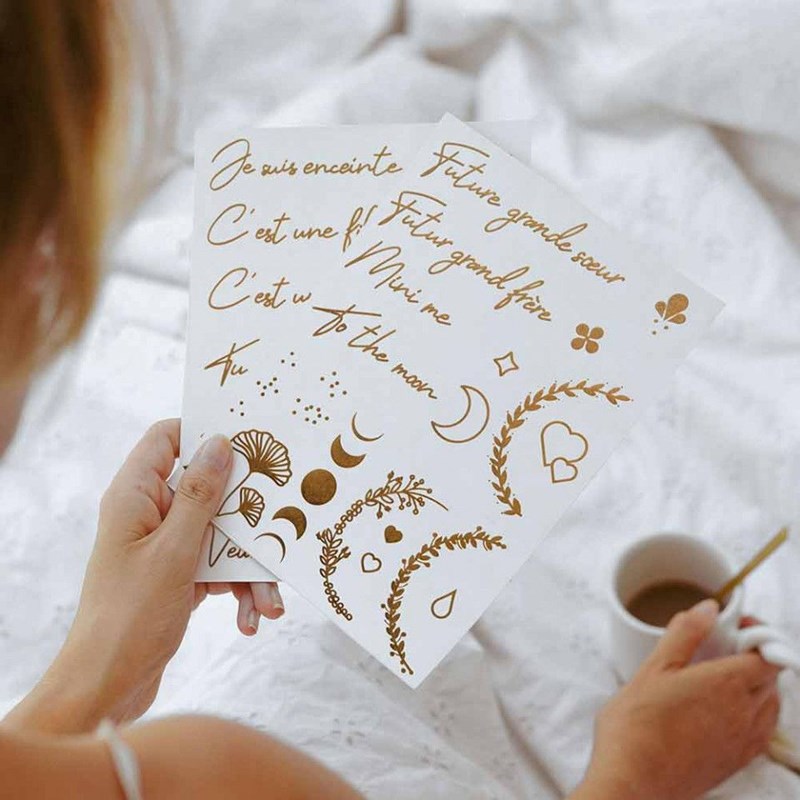 Je suis enceinte
C'est une
C'est
Tu
Future grande sœur
Futur grand frère
Mini me
To the moon